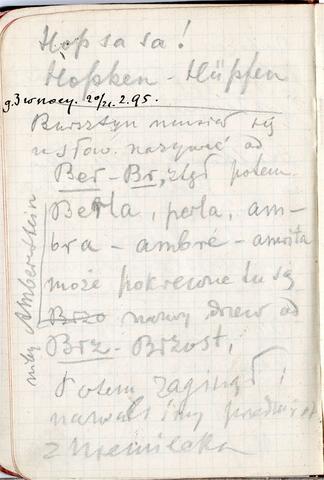 Hop sa sa!
Hopken - Hüpfen
g. 3 w nocy. 20/21.2.95.
Bursztyn musiał się
u słow. nazywać od
Ber - Br, ztąd potem
Berła, perła, am-
bra - ambré - amrita
może pokrecone tu są
Brzo nazwy drzew od
Brz - Brzost,
Potem zaginął i
nazwali inny przedmiot
z niemiecka
Ambersztein